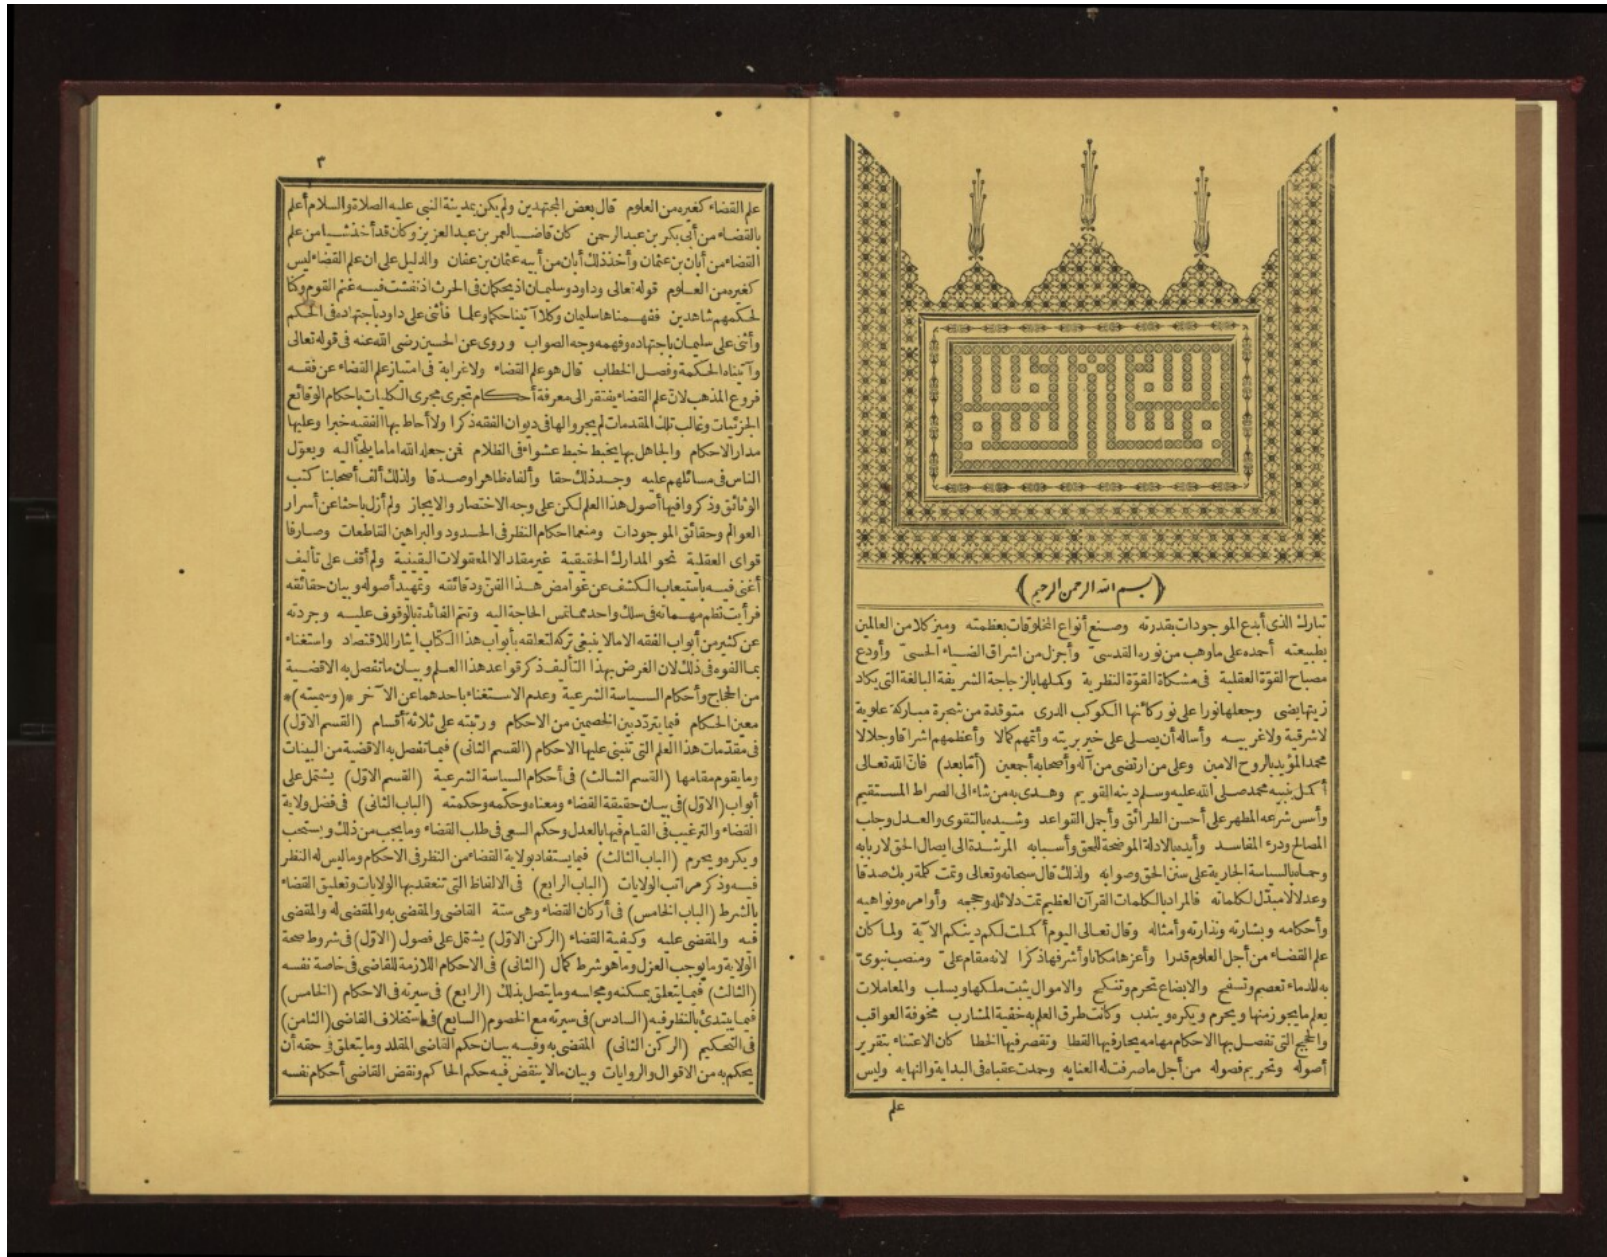 بسم الله الرحمن الرحيم
﴿بسم الله الرحمن الرحيم﴾
تبارك الذى أبدع الموجودات بقدرته وصنع أنواع المخلوقات بعظمته وميز كلا من العالمين
بطبيعته أحمده على ما وهب من نوره القدسى وأجزل من اشراق الضياء الحسى وأودع
مصباح القوّة العقلية فى مشكاة القوّة النظرية وكملها بالزجاجة الشريفة البالغة التى يكاد
زيتها يضى وجعلها نورا على نور كانها الكوكب الدرى متوقدة من شجرة مباركة علوية
لا شرقية ولا غربيه وأساله أن يصلى على خير بريته وأتمهم كمالا وأعظمهم اشراقا وجلالا
محمد المؤيد بالروح الامين وعلى من ارتضى من آله وأصحابه أجمعين (أمّا بعد) فانّ الله تعالى
أكمل لنبيه محمد صلى الله عليه وسلم دينه القويم وهدى به من شاء الى الصراط المستقيم
وأسس شرعه المطهر على أحسن الطرائق وأجمل القواعد وشيده بالتقوى والعدل وجلب
المصالح ودرء المفاسد وأيده بالادلة الموضحة للحق وأسبابه المرشدة الى ايصال الحق لاربابه
وحماه بالسياسة الجارية على سنن الحق وصوابه ولذلك قال سبحانه وتعالى وتمت كلمة ربك صدقا
وعدلا لا مبدّل لكلماته فالمراد بالكلمات القرآن العظيم تمت دلائله وحججه وأوامره ونواهيه
وأحكامه وبشارته ونذارته وأمثاله وقال تعالى اليوم أكملت لكم دينكم الآية ولما كان
علم القضاء من أجل العلوم قدرا وأعزها مكانا وأشرفها ذكرا لانه مقام علىّ ومنصب نبوىّ
به للدماء تعصم وتسفح والابضاع تحرم وتنكح والاموال يثبت ملكها ويسلب والمعاملات
يعلم ما يجوز منها ويحرم ويكره ويندب وكانت طرق العلم به خفية المشارب مخوفة العواقب
والحجج التى تفصل بها الاحكام مهامه يحار فيها القطا وتقصر فيها الخطا كان الاعتناء بتقرير
أصوله وتحرير فصوله من أجل ما صرفت له العنايه وحمدت عقباه فى البداية والنهايه وليس
علم
٣
علم القضاء كغيره من العلوم قال بعض المجتهدين ولم يكن بمدينة النبى عليه الصلاة والسلام أعلم
بالقضاء من أبى بكر بن عبد الرحمن كان قاضيا لعمر بن عبد العزيز وكان قد أخذ شيا من علم
القضاء من أبان بن عثمان وأخذ ذلك أبان من أبيه عثمان بن عفان والدليل على ان علم القضاء ليس
كغيره من العلوم قوله تعالى وداود وسليمان اذ يحكمان فى الحرث اذ نفشت فيه غنم القوم وكنا
لحكمهم شاهدين ففهمناها سليمان وكلا آتينا حكما وعلما فأثنى على داود باجتهاده فى الحكم
وأثنى على سليمان باجتهاده وفهمه وجه الصواب وروى عن الحسين رضى الله عنه فى قوله تعالى
وآتيناه الحكمة وفصل الخطاب قال هو علم القضاء ولا غرابة فى امتياز علم القضاء عن فقه
فروع المذهب لانّ علم القضاء يفتقر الى معرفة أحكام تجرى مجرى الكليات باحكام الوقائع
الجزئيات وغالب تلك المقدمات لم يجروا لها فى ديوان الفقه ذكرا ولا أحاط بها الفقيه خبرا وعليها
مدار الاحكام والجاهل بها يخبط خبط عشواء فى الظلام فمن جعله الله اماما يلجأ اليه ويعوّل
الناس فى مسائلهم عليه وجد ذلك حقا وألفاه ظاهرا وصدقا ولذلك ألف أصحابنا كتب
الوثائق وذكروا فيها أصول هذا العلم لكن على وجه الاختصار والايجاز ولم أزل باحثا عن أسرار
العوالم وحقائق الموجودات ومنعما احكام النظر فى الحدود والبراهين القاطعات وصارفا
قواى العقلية نحو المدارك الحقيقية غير مقلد الا المعقولات اليقينية ولم أقف على تأليف
أغنى فيه باستيعاب الكشف عن غوامض هذا الفنّ ودقائقه وتمهيد أصوله وبيان حقائقه
فرأيت نظم مهماته فى سلك واحد مما تمس الحاجة اليه وتتم الفائدة بالوقوف عليه وجردته
عن كثير من أبواب الفقه الا ما لا ينبغى تركه لتعلقه بأبواب هذا الكتاب ايثارا للاقتصاد واستغناء
بما ألفوه فى ذلك لان الغرض بهذا التأليف ذكر قواعد هذا العلم وبيان ما تفصل به الاقضية
من الحجاج وأحكام السياسة الشرعية وعدم الاستغناء باحدهما عن الآخر *(وسميته)*
معين الحكام فيما يتردّد بين الخصمين من الاحكام ورتبته على ثلاثة أقسام (القسم الاوّل)
فى مقدّمات هذا العلم التى تنبنى عليها الاحكام (القسم الثانى) فيما تفصل به الاقضية من البينات
وما يقوم مقامها (القسم الثالث) فى أحكام السياسة الشرعية (القسم الاوّل) يشتمل على
أبواب (الاوّل) فى بيان حقيقة القضاء ومعناه وحكمه وحكمته (الباب الثانى) فى فضل ولاية
القضاء والترغيب فى القيام فيها بالعدل وحكم السعى فى طلب القضاء وما يجب من ذلك ويستحب
ويكره ويحرم (الباب الثالث) فيما يستفاد بولاية القضاء من النظر فى الاحكام وما ليس له النظر
فيه وذكر مراتب الولايات (الباب الرابع) فى الالفاظ التى تنعقد بها الولايات وتعليق القضاء
بالشرط (الباب الخامس) فى أركان القضاء وهى ستة القاضى والمقضى به والمقضى له والمقضى
فيه والمقضى عليه وكيفية القضاء (الركن الاوّل) يشتمل على فصول (الاوّل) فى شروط صحة
الولاية وما يوجب العزل وما هو شرط كمال (الثانى) فى الاحكام اللازمة للقاضى فى خاصة نفسه
(الثالث) فيما يتعلق بمسكنه ومجلسه وما يتصل بذلك (الرابع) فى سيرته فى الاحكام (الخامس)
فيما يبتدئ بالنظر فيه (السادس) فى سيرته مع الخصوم (السابع) فى استخلاف القاضى (الثامن)
فى التحكيم (الركن الثانى) المقضى به وفيه بيان حكم القاضى المقلد وما يتعلق فى حقه أن
يحكم به من الاقوال والروايات وبيان ما لا ينقض فيه حكم الحاكم ونقض القاضى أحكام نفسه